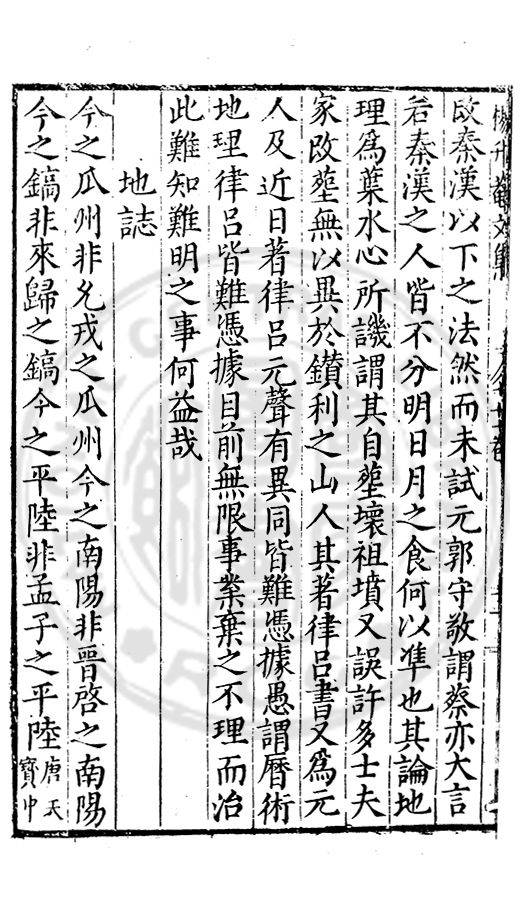 楊升菴文集
改秦漢以下之法然而未試元郭守敬謂蔡亦大言
若秦漢之人皆不分明日月之食何以凖也其論地
理爲葉水心所譏謂其自塟壞祖墳又誤許多士夫
家改塟無以異於鑽利之山人其著律呂書又爲元
人及近日著律呂元聲有異同皆難憑據愚謂曆術
地理律呂皆難憑據目前無限事業棄之不理而治
此難知難明之事何益哉
地誌
今之瓜州非允戎之瓜州今之南陽非晉啓之南陽
今之鎬非來歸之鎬今之平陸非孟子之平陸唐天
寶中